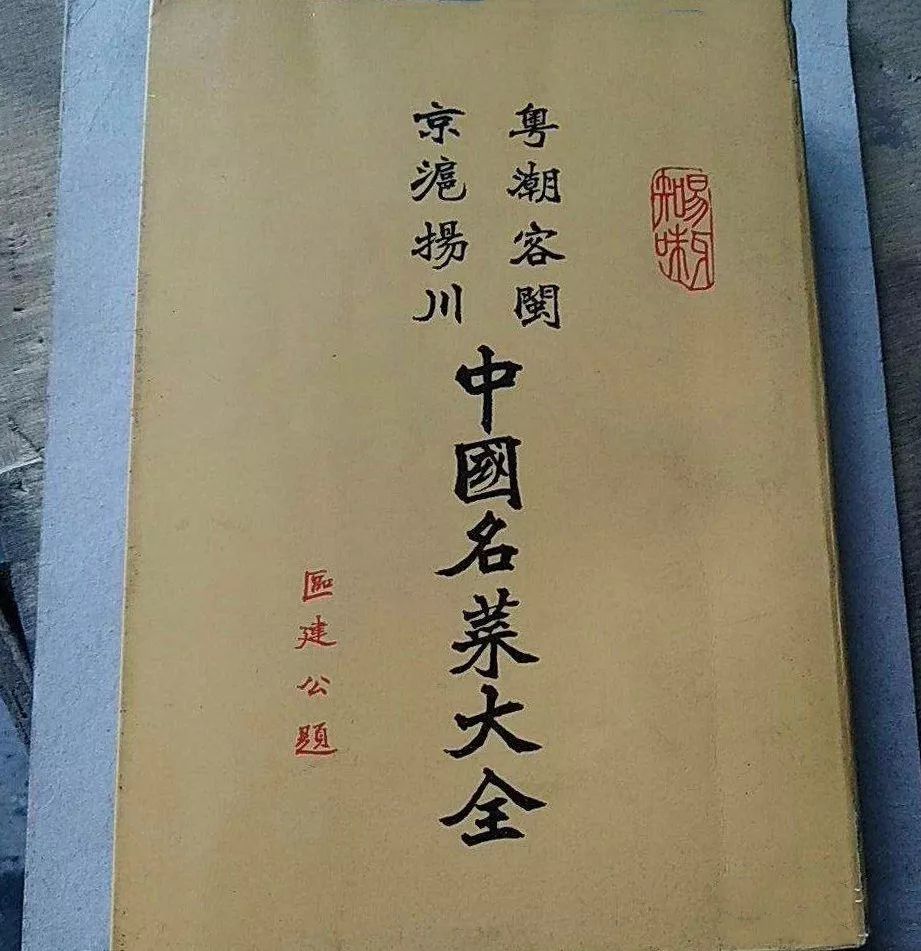 易牙
知味
粵潮客閩
京滬揚川
中國名菜大全
區建公題